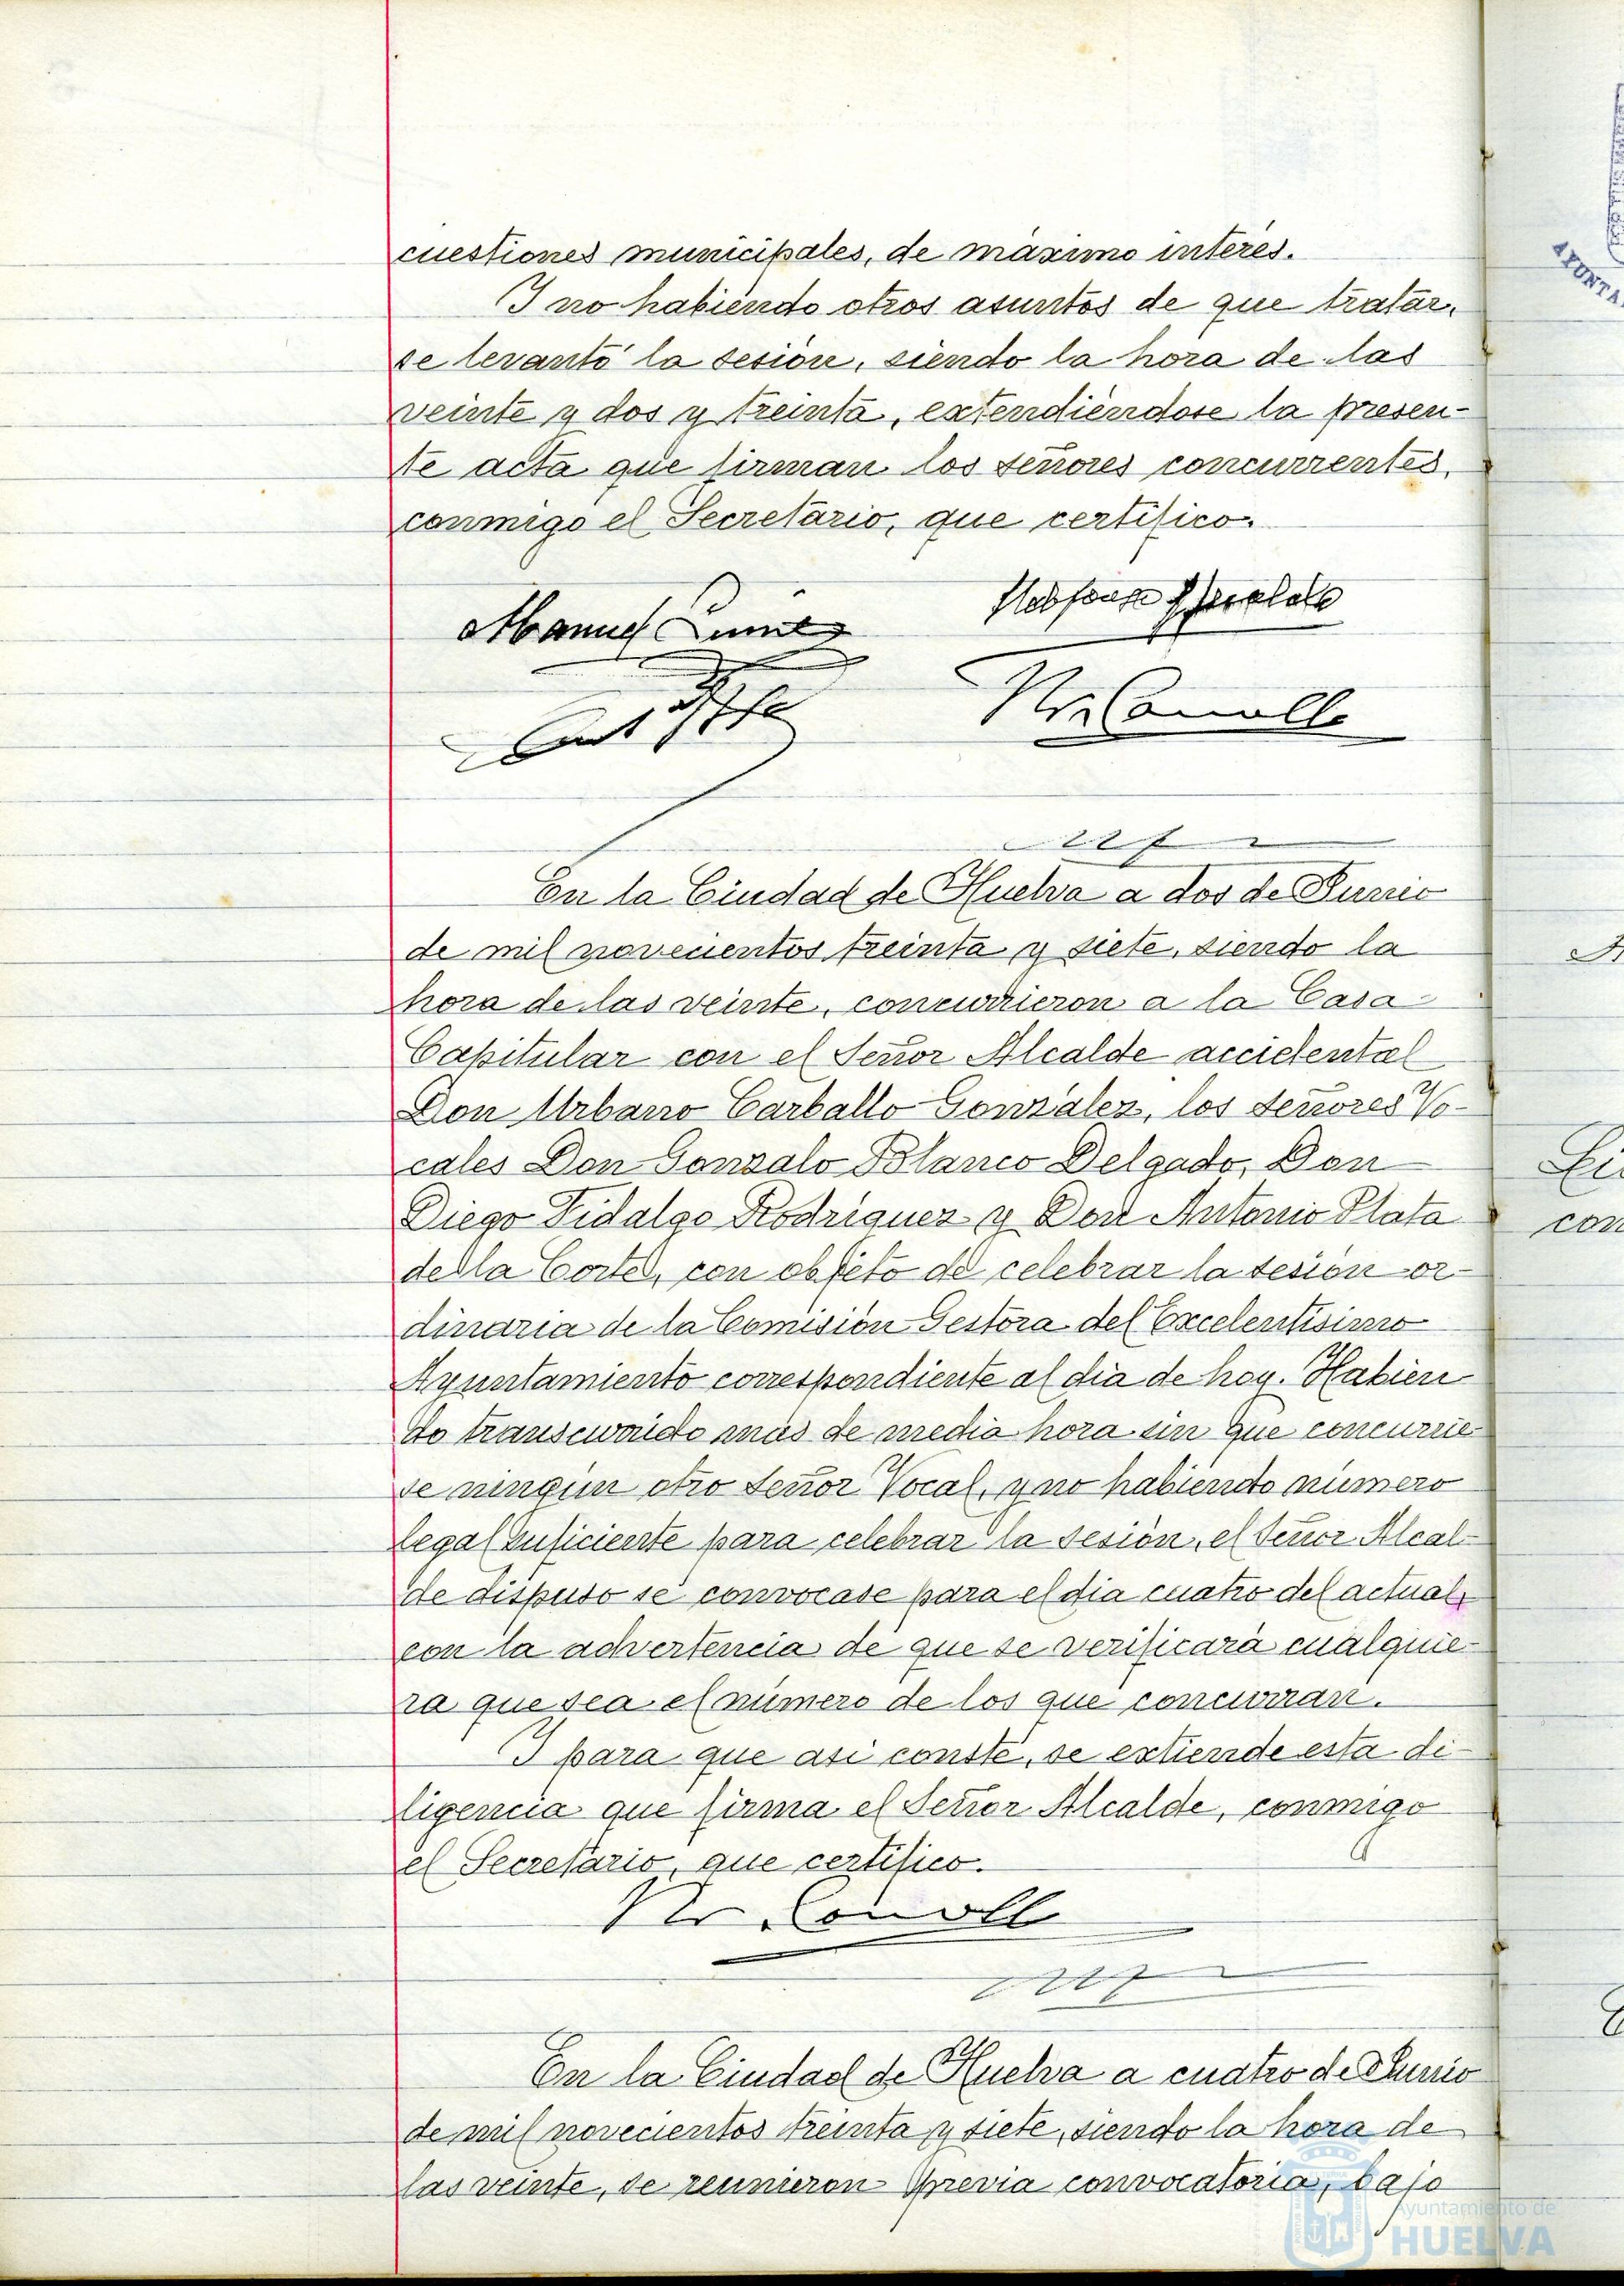 cuestiones municipales, de máximo interés.
Y no habiendo otros asuntos de que tratar,
se levantó la sesión, siendo la hora de las
veinte y dos y treinta, extendiéndose la presen-
te acta que firman los señores concurrentes,
conmigo el Secretario, que certifico.
Manuel
En la Ciudad de Huelva a dos de Junio
de mil novecientos treinta y siete, siendo la
hora de las veinte, concurrieron a la Casa
Capitular con el Señor Alcalde accidental
Don Urbano Carballo González, los señores Vo-
cales Don Gonzalo Blanco Delgado, Don
Diego Fidalgo Rodríguez y Don Antonio Plata
de la Corte, con objeto de celebrar la sesión or-
dinaria de la Comisión Gestora del Excelentísimo
Ayuntamiento correspondiente al dia de hoy. Habien-
do transcurrido más de media hora sin que concurrie-
se ningún otro Señor Vocal, y no habiendo número
legal suficiente para celebrar la sesión, el Señor Alcal-
de dispuso se convocase para el dia cuatro del actual,
con la advertencia de que se verificará cualquie-
ra que sea el número de los que concurran.
Y para que asi conste, se extiende esta di-
ligencia que firma el Señor Alcalde, conmigo
el Secretario, que certifico.
En la Ciudad de Huelva a cuatro de Junio
de mil novecientos treinta y siete, siendo la hora de
las veinte, se reunieron previa convocatoria, bajo
Ayuntamiento de
HUELVA